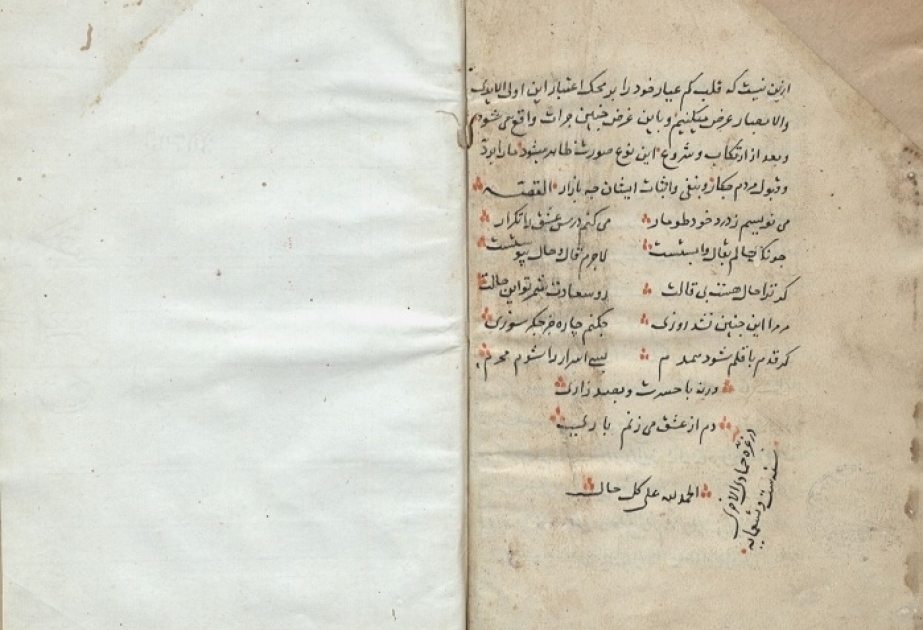 ازین نیست که قلب کم عیار خود را بر محک اعتبار این اولی الایدی
والابصار عرض میکنیم و باین عرض چنین جرات واقع می شود
و بعد از ارتکاب و شروع این نوع صورت ظاهر میشود مارا برد
و قبول مردم چکار و بنفی و اثبات ایشان چه بازار القصه
می نویسم ز درد خود طومار می کنم درس عشق را تکرار
چونکه حالم بقال وابستست لاجرم قال و حال پیوستست
گر ترا حال هست بی قالت رو سعادت شمر تو این حالت
مر مرا این چنین نشد روزی چکنم چاره جز جگر سوزی
گر قدم با قلم شود همدم بس اسرار را شوم محرم
ورنه با حسرت و بصد زاری
دم از عشق می زنم باری
الحمد لله علی کل حال
در غره جمادی الاخری
سنه ست و تسعمایه